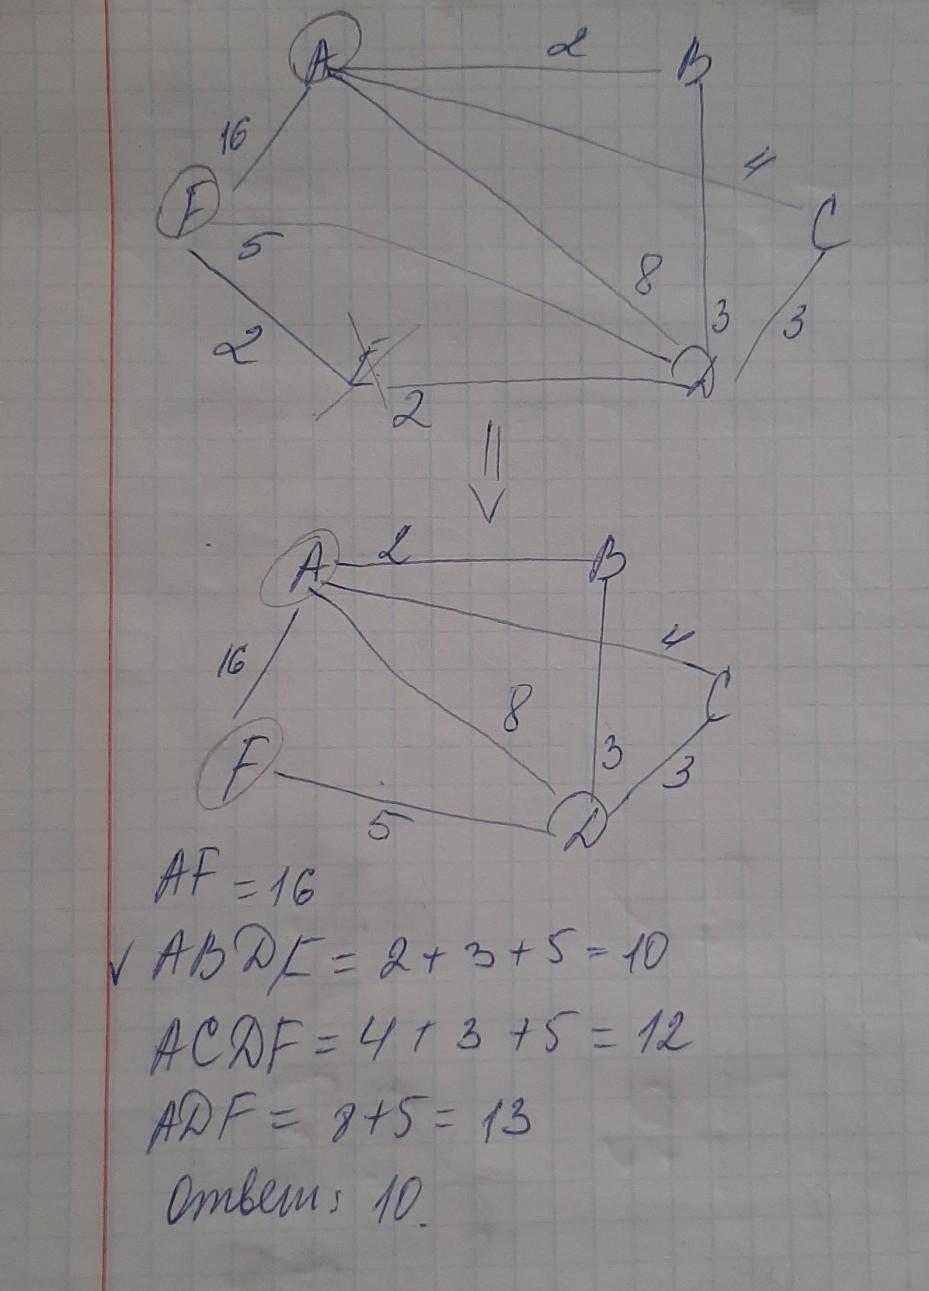 A 2 B
16 4
F C
5 8
3 3
2 E D
2
A 2 B
4
16 C
8
F 3 3
5 D
AF = 16
√ ABDE = 2 + 3 + 5 = 10
ACDF = 4 + 3 + 5 = 12
ADF = 8 + 5 = 13
Ответ: 10.